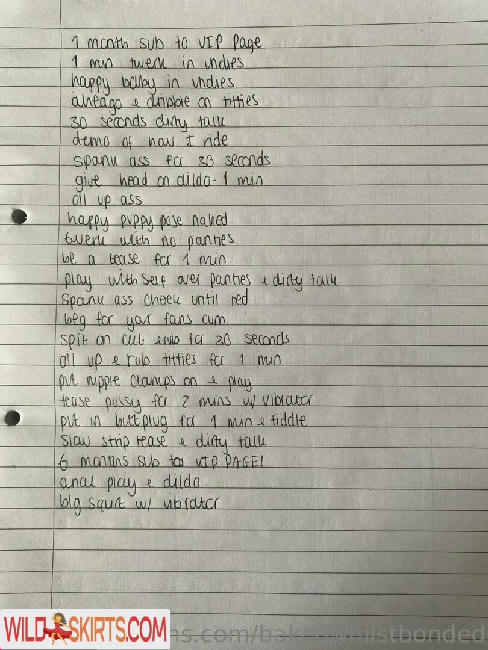 1 month sub to VIP Page
1 min twerk in undies
happy baby in undies
aheago & dribble on titties
30 seconds dirty talk
demo of how I ride
spank ass for 30 seconds
give head on dildo - 1 min
oil up ass
happy puppy pose naked
twerk with no panties
be a tease for 1 min
play with self over panties & dirty talk
spank ass cheek until red
beg for your fans cum
spit on clit & rub for 30 seconds
oil up & rub titties for 1 min
put nipple clamps on & play
tease pussy for 2 mins w/ vibrator
put in buttplug for 1 min & fiddle
slow strip tease & dirty talk
6 months sub to VIP PAGE!
anal play & dildo
big squirt w/ vibrator
WILDSKIRTS.COM